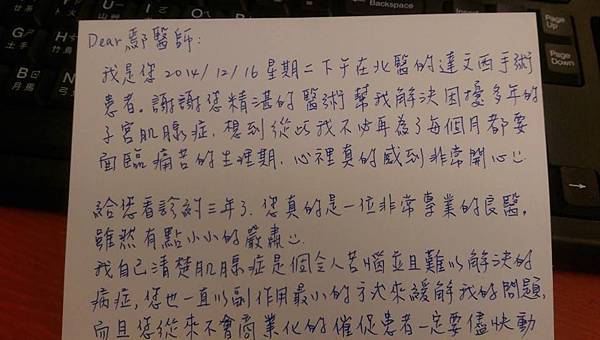 Dear 鄢醫師:
我是您2014/12/16星期二下午在北醫的達文西手術
患者。謝謝您精湛的醫術幫我解決困擾多年的
子宮肌腺症,想到從此我不必再為了每個月都要
面臨痛苦的生理期,心裡真的感到非常開心
給您看診約三年了,您真的是一位非常專業的良醫。
雖然有點小小的嚴肅
我自己清楚肌腺症是個令人苦惱並且難以解決的
病症,您也一直以副作用最小的方式來緩解我的問題,
而且您從來不會商業化的催促患者一定要儘快動
Backspace
Page Up
Page Down
G
土
手
B
月
H
竹
鳥
N
弓
U
山